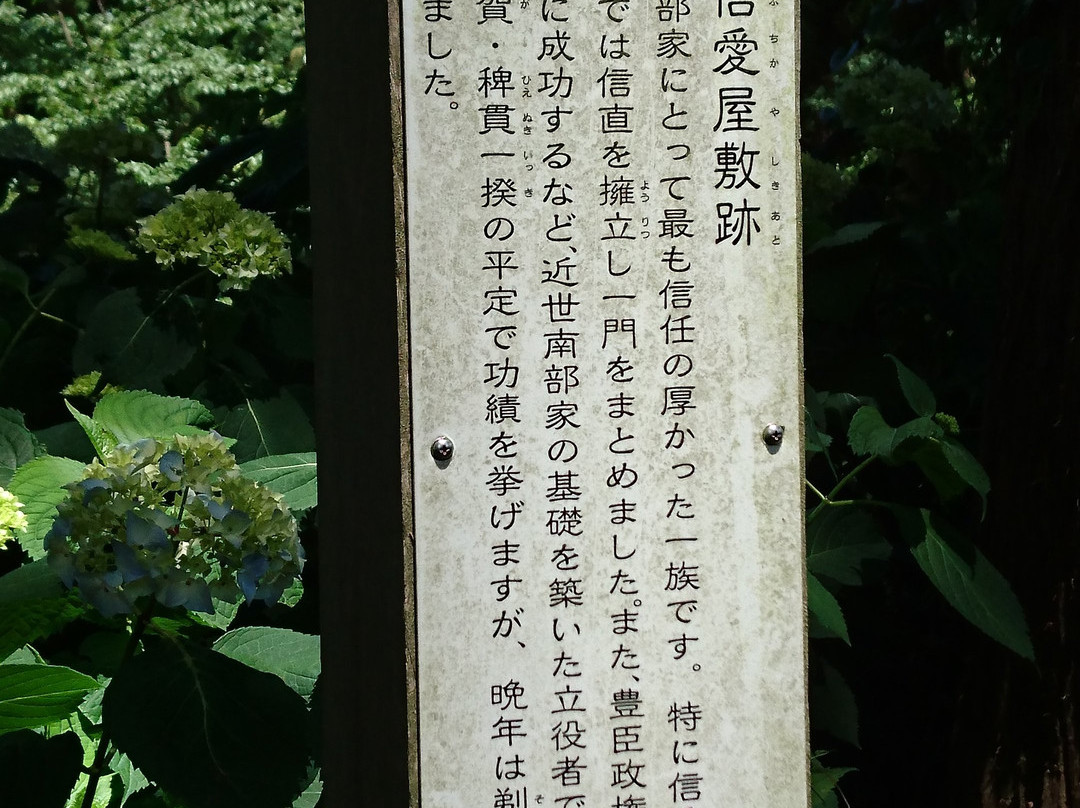 信愛屋敷跡
部家にとって最も信任の厚かった一族です。特に信
では信直を擁立し一門をまとめました。また、豊臣政権
に成功するなど、近世南部家の基礎を築いた立役者で
賀・稗貫一揆の平定で功績を挙げますが、晩年は剃
ました。